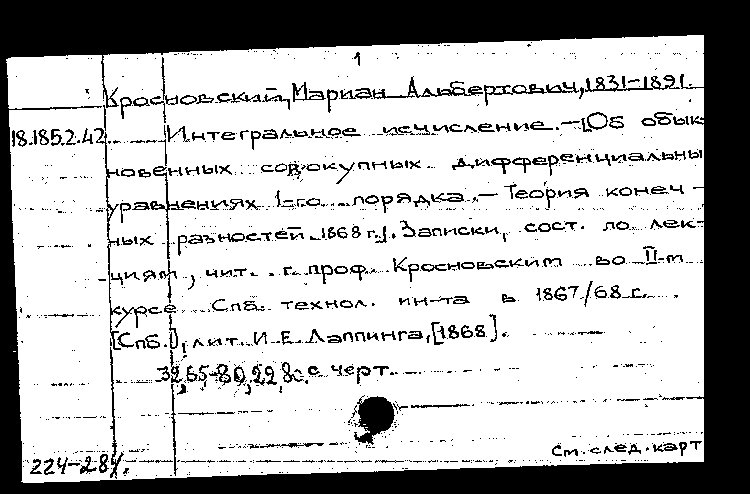 1
Кросновский, Мариан Альбертович, 1831-1891.
18.185.2.42 Интегральное исчисление. - [Об обык-
новенных совокупных дифференциальны
уравнениях 1-го порядка. - Теория конеч-
ных разностей 1868 г.]. Записки, сост. по лек-
циям, чит. г. проф. Кросновским во II-м
курсе Спб. технол. ин-та в 1867/68 г.
[Спб.], лит. И.Е. Лаппинга, [1868].
32, 65-80, 22, 8 с. с черт.
См. след. карт
224-284.